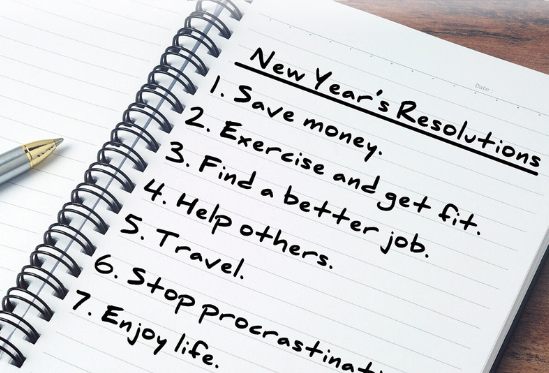 Date
New Year's Resolutions
1. Save money.
2. Exercise and get fit.
3. Find a better job.
4. Help others.
5. Travel.
6. Stop procrastinati
7. Enjoy life.